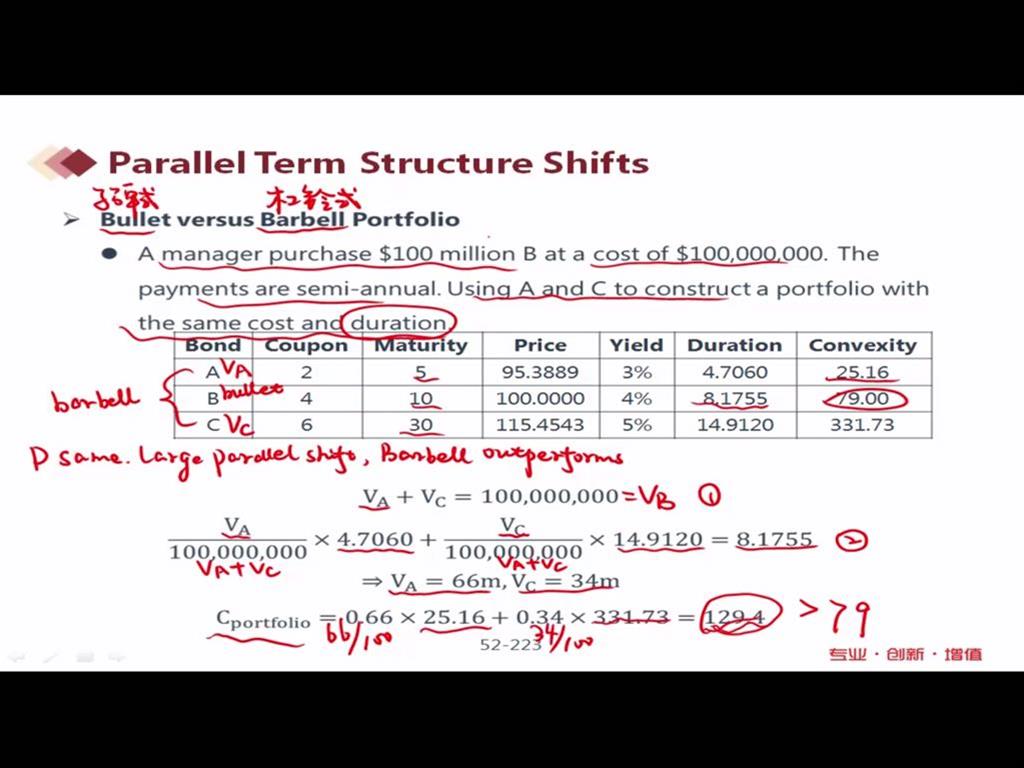 Parallel Term Structure Shifts
子弹式 杠铃式
➢ Bullet versus Barbell Portfolio
● A manager purchase $100 million B at a cost of $100,000,000. The
payments are semi-annual. Using A and C to construct a portfolio with
the same cost and duration.
Bond Coupon Maturity Price Yield Duration Convexity
A VA 2 5 95.3889 3% 4.7060 25.16
barbell B bullet 4 10 100.0000 4% 8.1755 79.00
C VC 6 30 115.4543 5% 14.9120 331.73
D same. Large parallel shift, Barbell outperforms
V_A + V_C = 100,000,000 = VB ①
V_A/100,000,000 × 4.7060 + V_C/100,000,000 × 14.9120 = 8.1755 ②
VA+VC VA+VC
⇒ V_A = 66m, V_C = 34m
C_portfolio = 0.66 × 25.16 + 0.34 × 331.73 = 129.4 > 79
66/100 34/100
52-223
专业·创新·增值